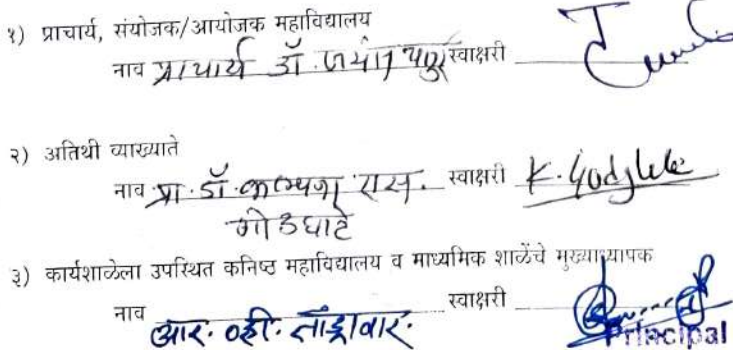 १) प्राचार्य, संयोजक/आयोजक महाविद्यालय
नाव प्राचार्य डॉ. स्वाक्षरी
२) अतिथी व्याख्याते
नाव प्रा. डॉ. कल्पना एस. स्वाक्षरी K. Godghate
गोडघाटे
३) कार्यशाळेला उपस्थित कनिष्ठ महाविद्यालय व माध्यमिक शाळेंचे मुख्याध्यापक
नाव आर. व्ही. ताेंड्रावार. स्वाक्षरी
Principal